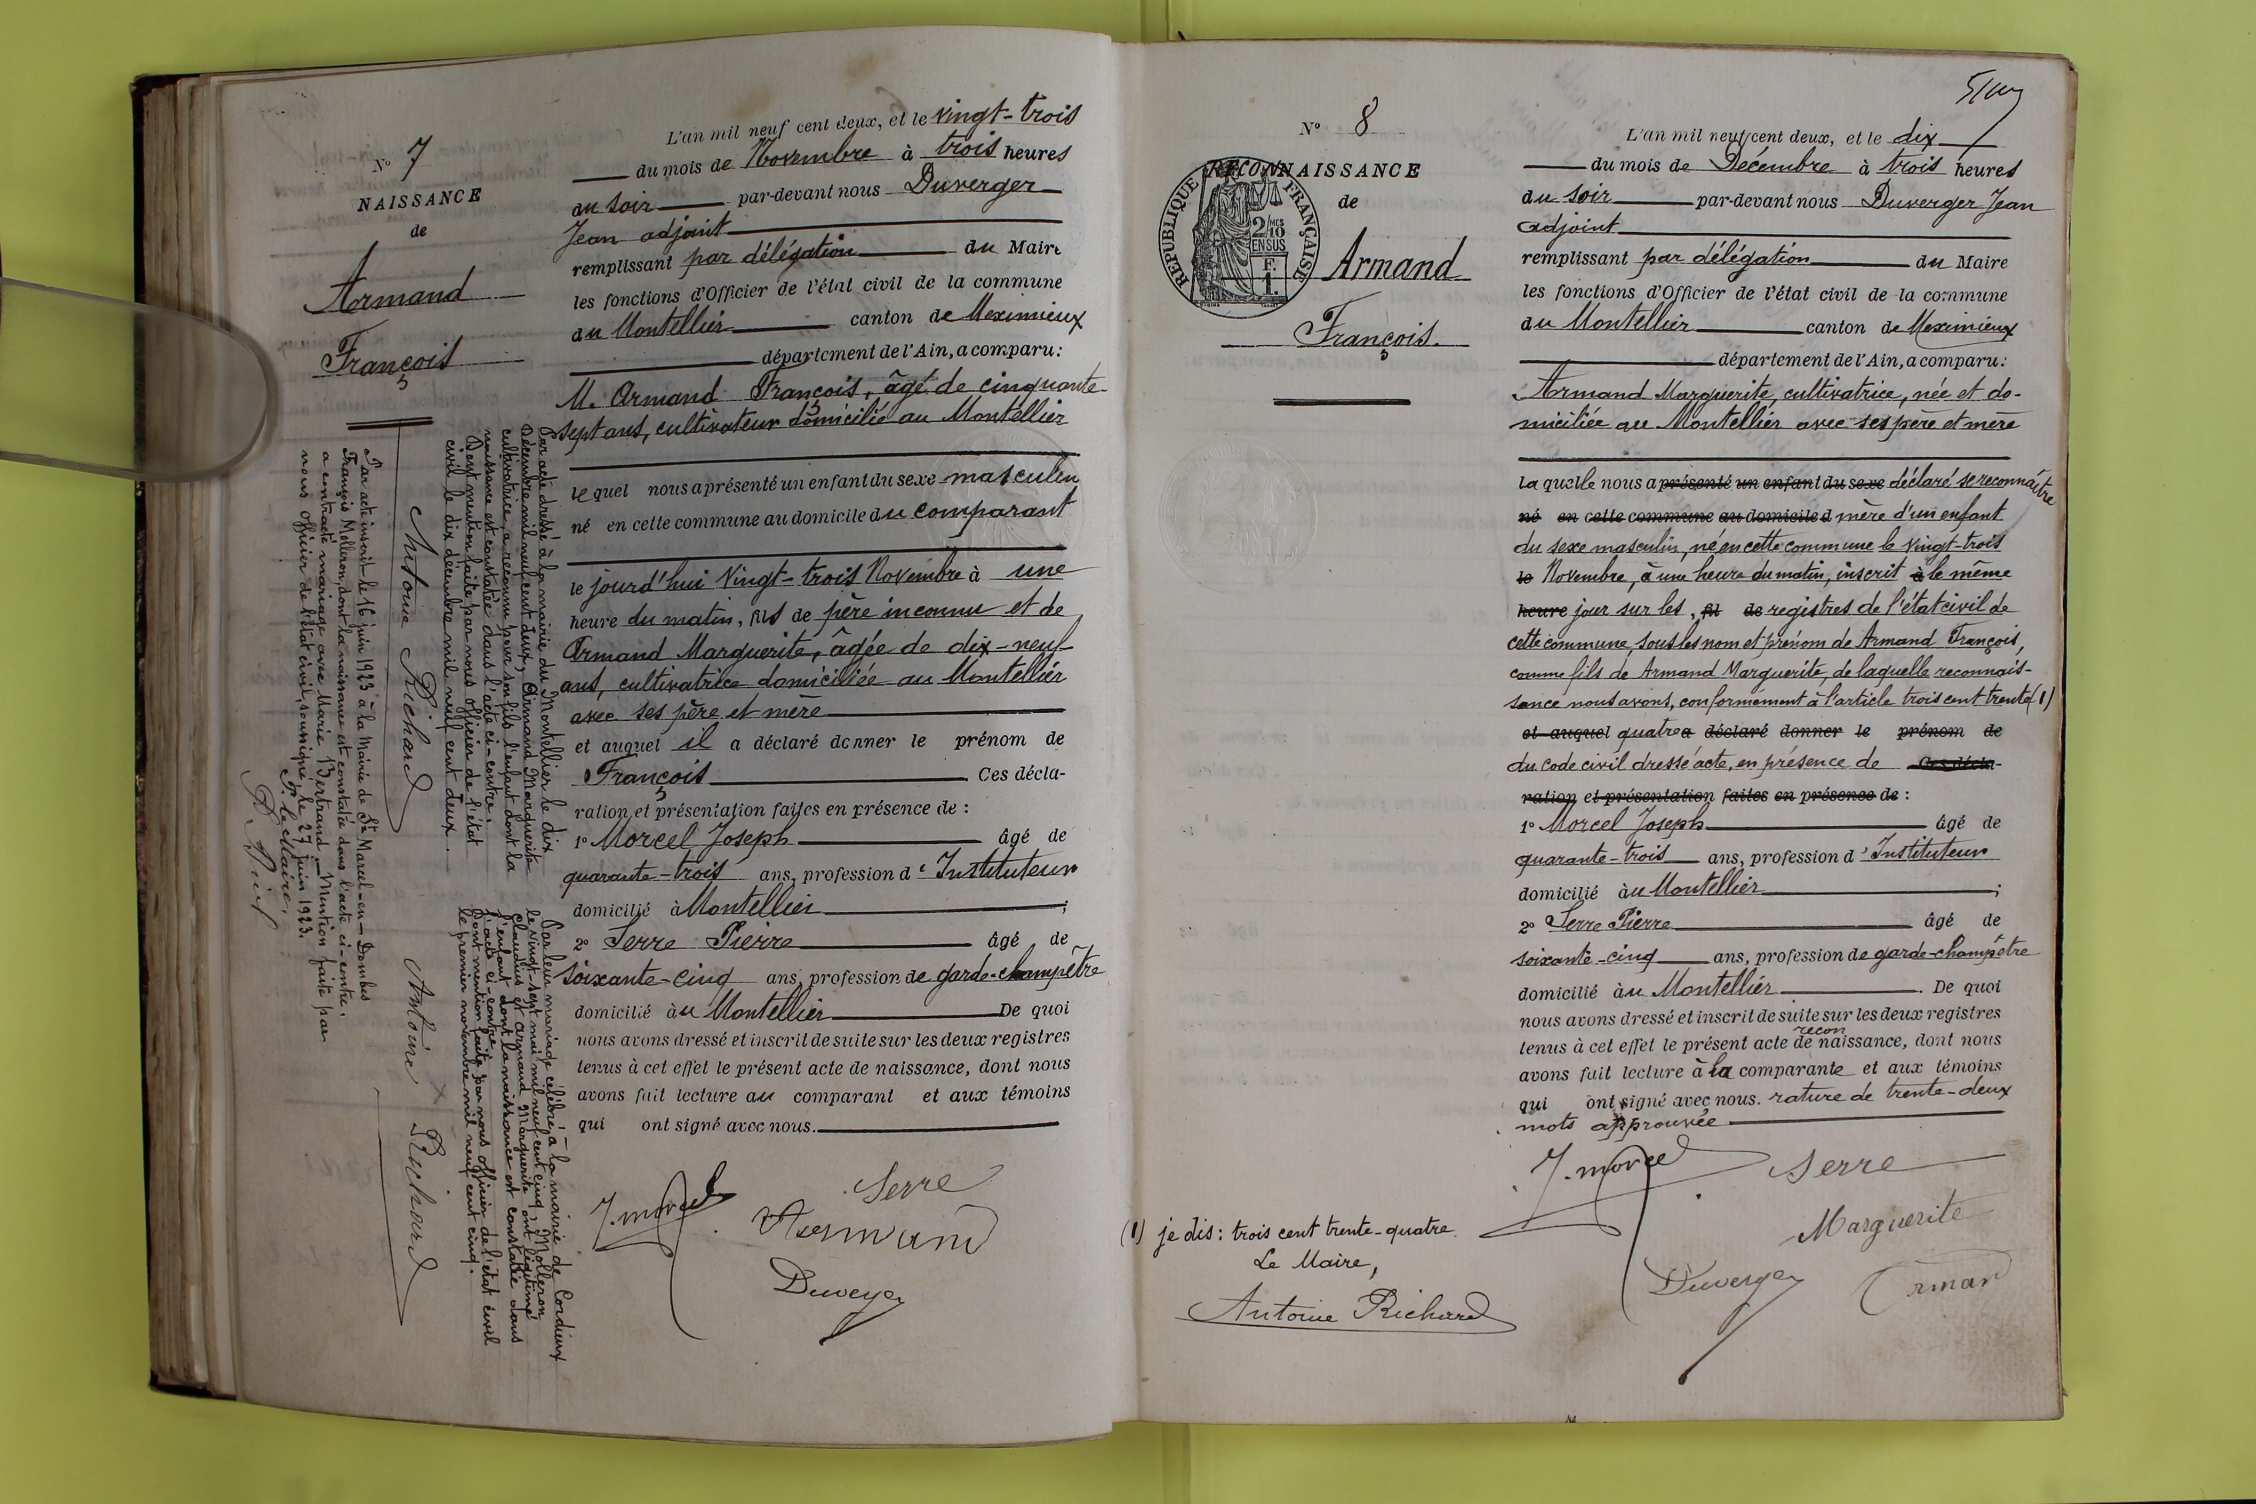 N° 7
NAISSANCE
de
Armand
François
L'an mil neuf cent deux, et le vingt-trois
du mois de Novembre à trois heures
du soir par-devant nous Duverger
Jean adjoint
remplissant par délégation du Maire
les fonctions d'Officier de l'état civil de la commune
du Montellier canton de Meximieux
département de l'Ain, a comparu:
M. Armand François, âgé de cinquante-
sept ans, cultivateur domicilié au Montellier
lequel nous a présenté un enfant du sexe masculin
né en cette commune au domicile du comparant
le jourd'hui vingt-trois Novembre à une
heure du matin, fils de père inconnu et de
Armand Marguerite, âgée de dix-neuf
ans, cultivatrice domiciliée au Montellier
avec ses père et mère
et auquel il a déclaré donner le prénom de
François Ces décla-
ration et présentation faites en présence de :
1° Morcel Joseph âgé de
quarante-trois ans, profession d'Instituteur
domicilié à Montellier ;
2° Serre Pierre âgé de
soixante-cinq ans, profession de garde-champêtre
domicilié au Montellier De quoi
nous avons dressé et inscrit de suite sur les deux registres
tenus à cet effet le présent acte de naissance, dont nous
avons fait lecture au comparant et aux témoins
qui ont signé avec nous.
J. Morcel
Serre
Armand
Duverger
Par acte dressé à la mairie du Montellier le dix
Décembre mil neuf cent deux, Armand Marguerite
cultivatrice, a reconnu pour son fils l'enfant dont la
naissance est constatée dans l'acte ci-contre.
Dont mention faite par nous officier de l'état
civil le dix décembre mil neuf cent deux.
Antoine Richard
Par leur mariage célébré à la mairie de Cordieux
le vingt-sept mai mil neuf cent cinq, Molleron
Claudius et Armand Marguerite ont légitimé
l'enfant dont la naissance est constatée dans
l'acte ci-contre.
Dont mention faite par nous officier de l'état civil
le premier novembre mil neuf cent cinq.
Antoine Richard
Par acte inscrit le 16 juin 1923 à la Mairie de St Marcel-en-Dombes
François Molleron, dont la naissance est constatée dans l'acte ci-contre,
a contracté mariage avec Marie Bertrand. Mention faite par
nous officier de l'état civil, soussigné, le 27 juin 1923.
Le Maire,
N° 8
RECONNAISSANCE
de
Armand
François.
REPUBLIQUE FRANÇAISE
2/10 EN SUS
F.
1.
L'an mil neuf cent deux, et le dix
du mois de Décembre à trois heures
du soir par-devant nous Duverger Jean
adjoint
remplissant par délégation du Maire
les fonctions d'Officier de l'état civil de la commune
du Montellier canton de Meximieux
département de l'Ain, a comparu:
Armand Marguerite, cultivatrice, née et do-
miciliée au Montellier avec ses père et mère
laquelle nous a présenté un enfant du sexe déclaré se reconnaître
né en cette commune au domicile d mère d'un enfant
du sexe masculin, né en cette commune le vingt-trois
le Novembre, à une heure du matin, inscrit à le même
heure jour sur les, fil de registres de l'état civil de
cette commune, sous les nom et prénom de Armand François,
comme fils de Armand Marguerite, de laquelle reconnais-
sance nous avons, conformément à l'article trois cent trente (1)
et auquel quatre a déclaré donner le prénom de
du code civil dressé acte, en présence de Ces décla-
ration et présentation faites en présence de :
1° Morcel Joseph âgé de
quarante-trois ans, profession d'Instituteur
domicilié au Montellier ;
2° Serre Pierre âgé de
soixante-cinq ans, profession de garde-champêtre
domicilié au Montellier. De quoi
nous avons dressé et inscrit de suite sur les deux registres
recon
tenus à cet effet le présent acte de naissance, dont nous
avons fait lecture à la comparante et aux témoins
qui ont signé avec nous. rature de trente-deux
mots approuvée
J. Morcel
Serre
Marguerite
Duverger
Arman
(1) je dis : trois cent trente-quatre.
Le Maire,
Antoine Richard